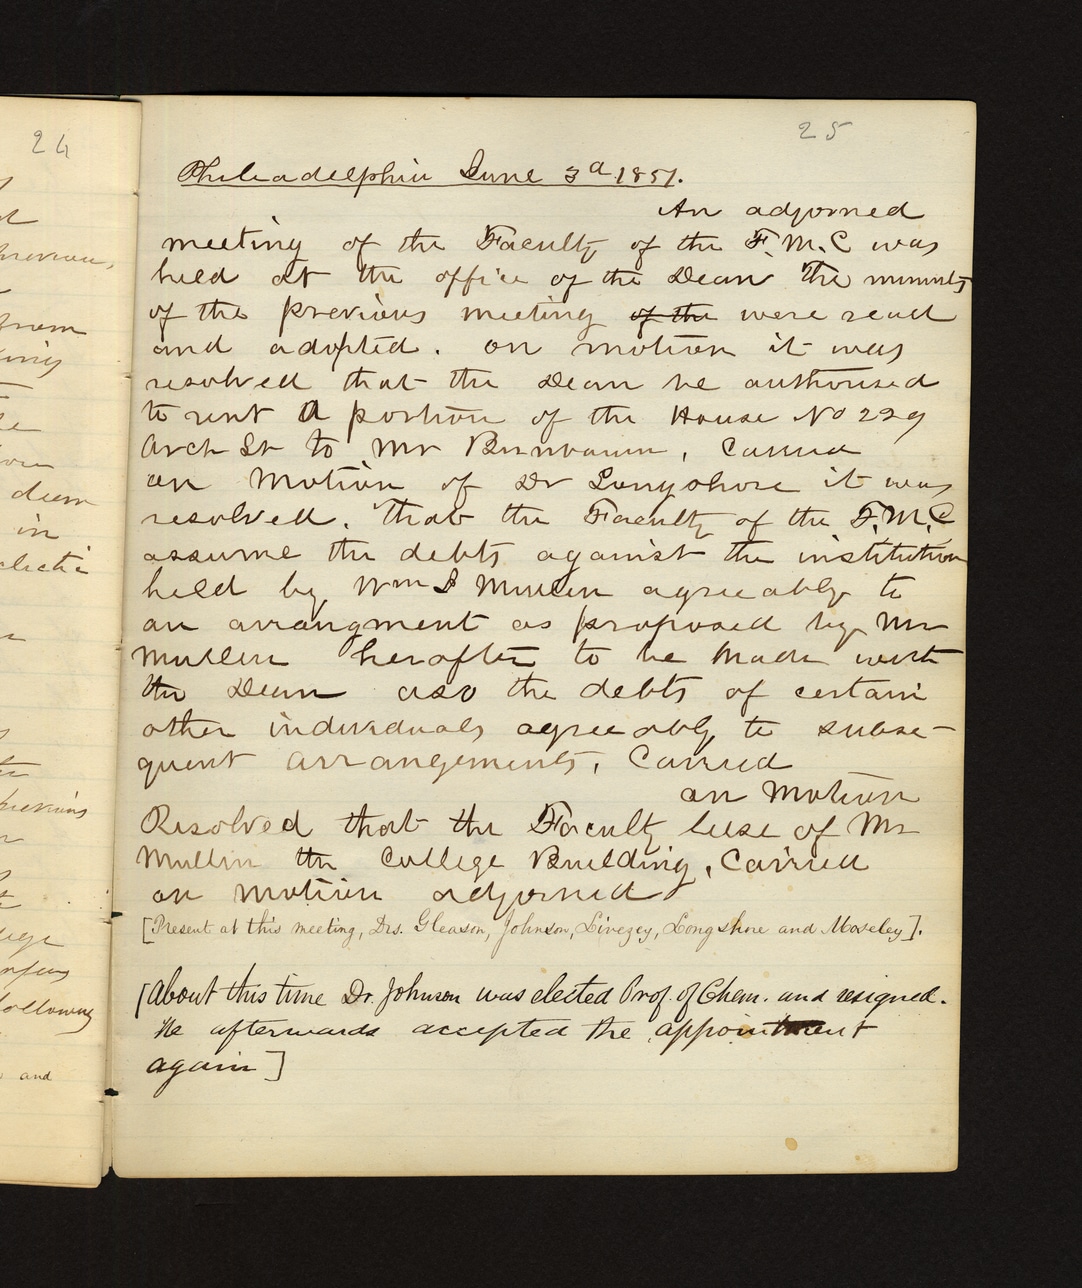 25
Philadelphia June 3d 1851.
An adjorned
meeting of the Faculty of the F. M. C was
held at the office of the Dean. The minuts
of the previous meeting of the were read
and adopted. on motion it was
resolved that the Dean be authorised
to rent a portion of the House No 229
Arch St to Mr , Carried
on Motion of Dr Longshore it was
resolved. That the Faculty of the F. M. C
assume the debts against the institution
held by Wm S Mullen agreeably to
an arrangment as proposed by Mr
Mullen herafter to be made with
the Dean also the debts of certain
other individuals agreeably to subse-
quent arrangements, Carried
on Motion
Resolved that the Faculty lease of Mr
Mullin the College Building, Carried
on motion adjorned
[Present at this meeting, Drs. Gleason, Johnson, Livezey, Longshore and Moseley].
[About this time Dr. Johnson was elected Prof. of Chem. and resigned.
He afterwards accepted the appointment
again]
24
dum
in
following
and